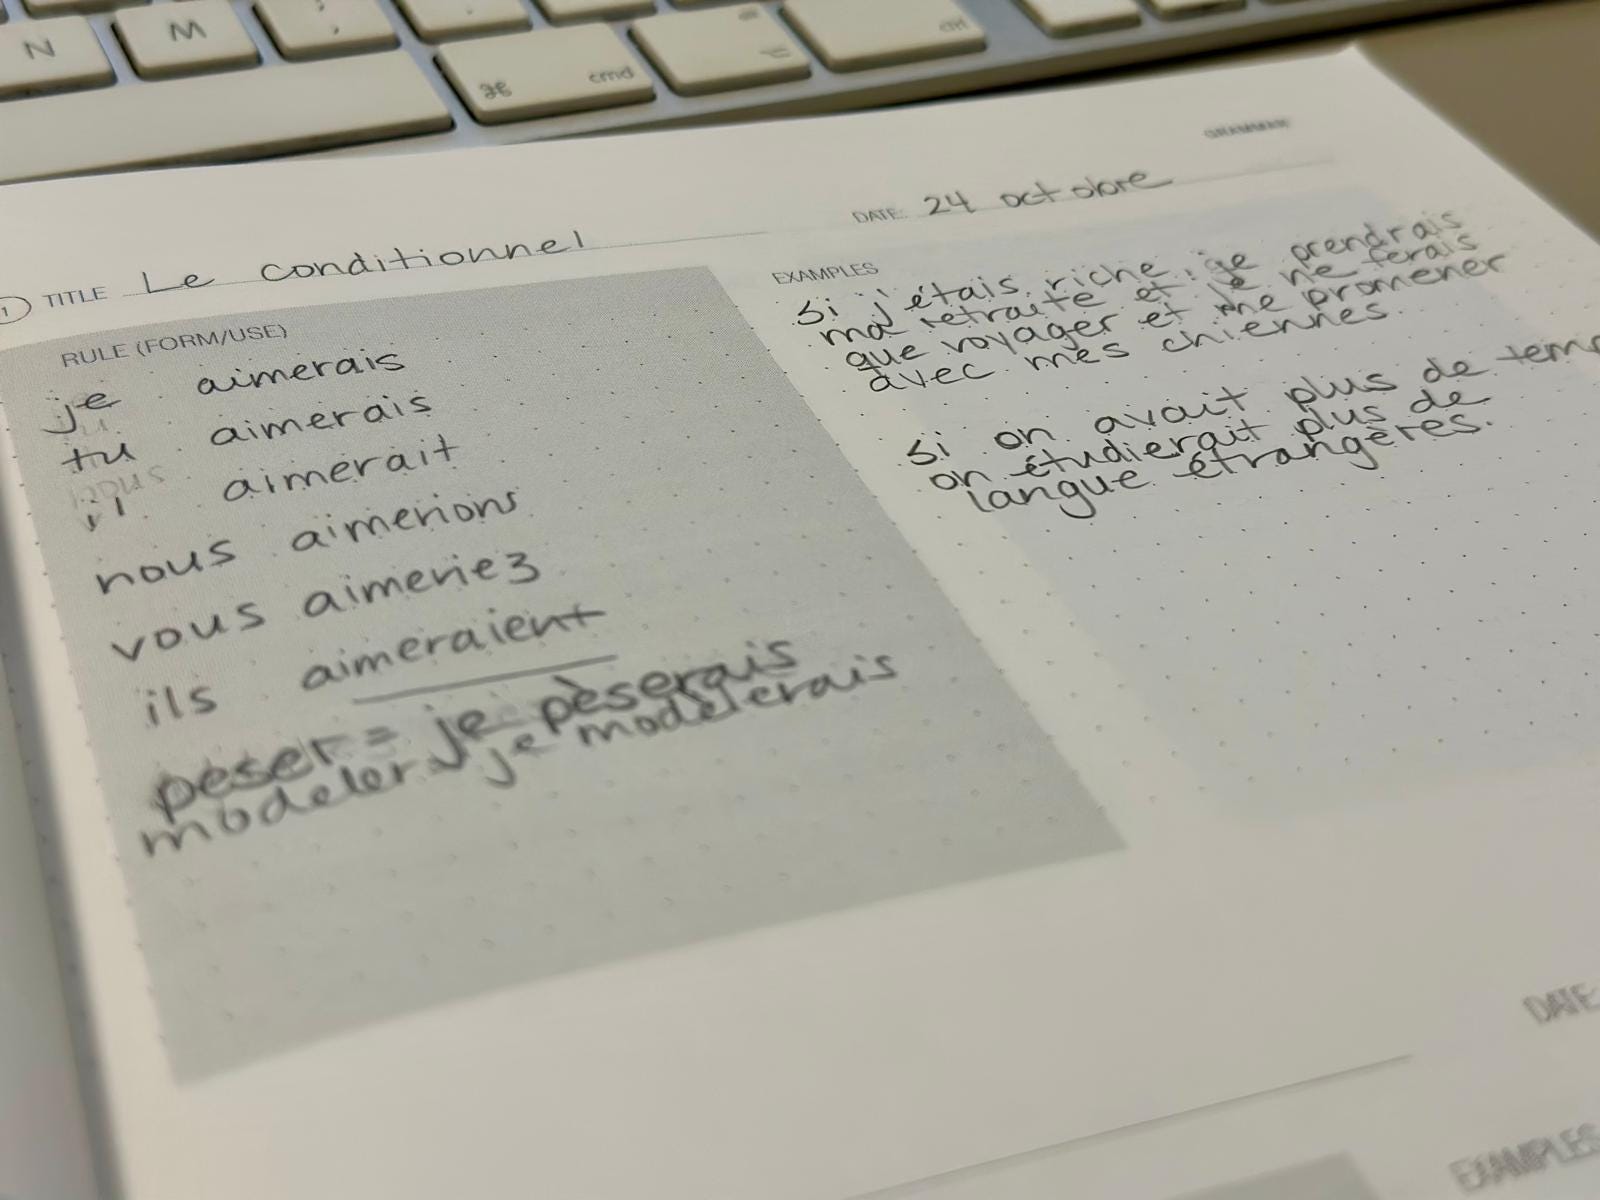 N
M
;
⌘ cmd
⌥
ctrl
GRAMMAR
1 TITLE Le conditionnel
DATE: 24 octobre
RULE (FORM/USE)
je aimerais
tu aimerais
il aimerait
nous aimerions
vous aimeriez
ils aimeraient
peser = je pèserais
modeler = je modèlerais
EXAMPLES
Si j'étais riche, je prendrais
ma retraite et je ne ferais
que voyager et me promener
avec mes chiennes.
Si on avait plus de temp
on étudierait plus de
langue étrangères.
DATE:
EXAMPLES